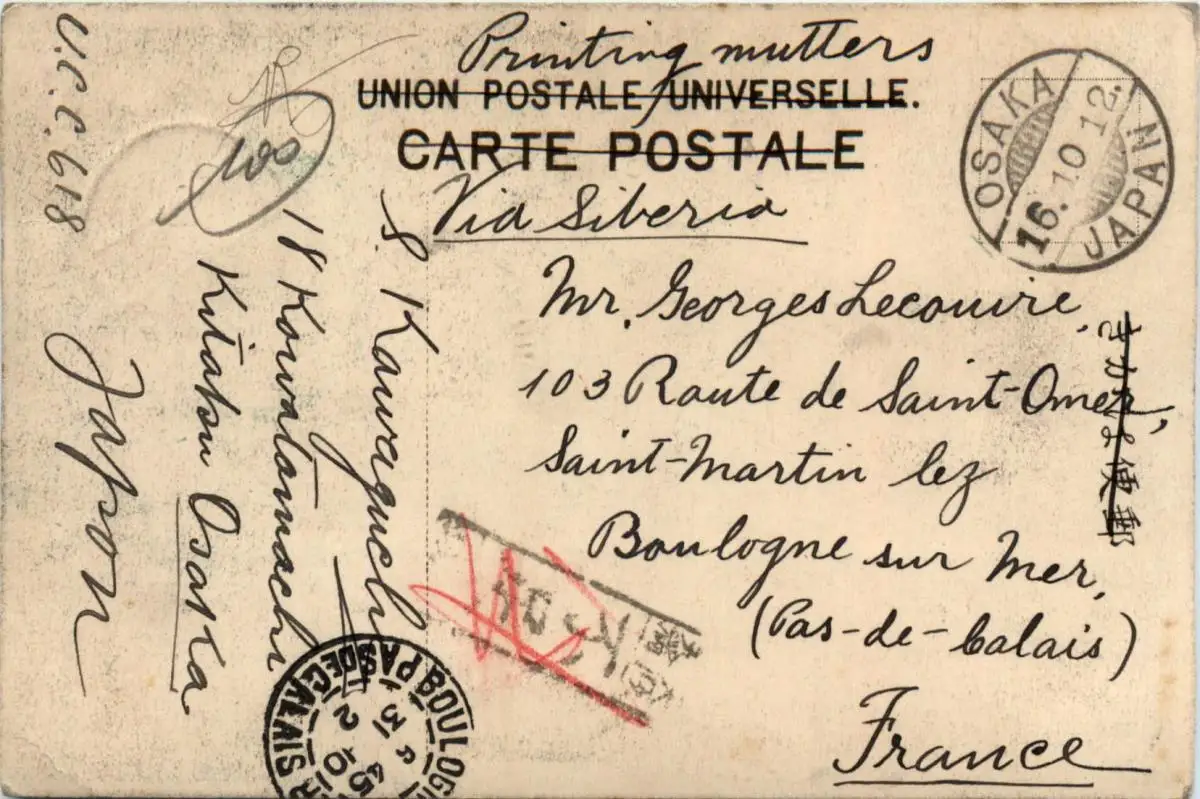 Printing mutters
UNION POSTALE UNIVERSELLE.
CARTE POSTALE
Via Siberia
OSAKA
16. 10 12
JAPAN
Mr. Georges Lecouire,
103 Route de Saint-Omer,
Saint-Martin lez
Boulogne sur Mer,
(Pas-de-Calais)
France
きかは便郵
S. Kawaguchi
18 Kowatamachi
Kitaku Osaka
Japon
U.C.C. 618
BOULOG
PAS DE CALAIS
31